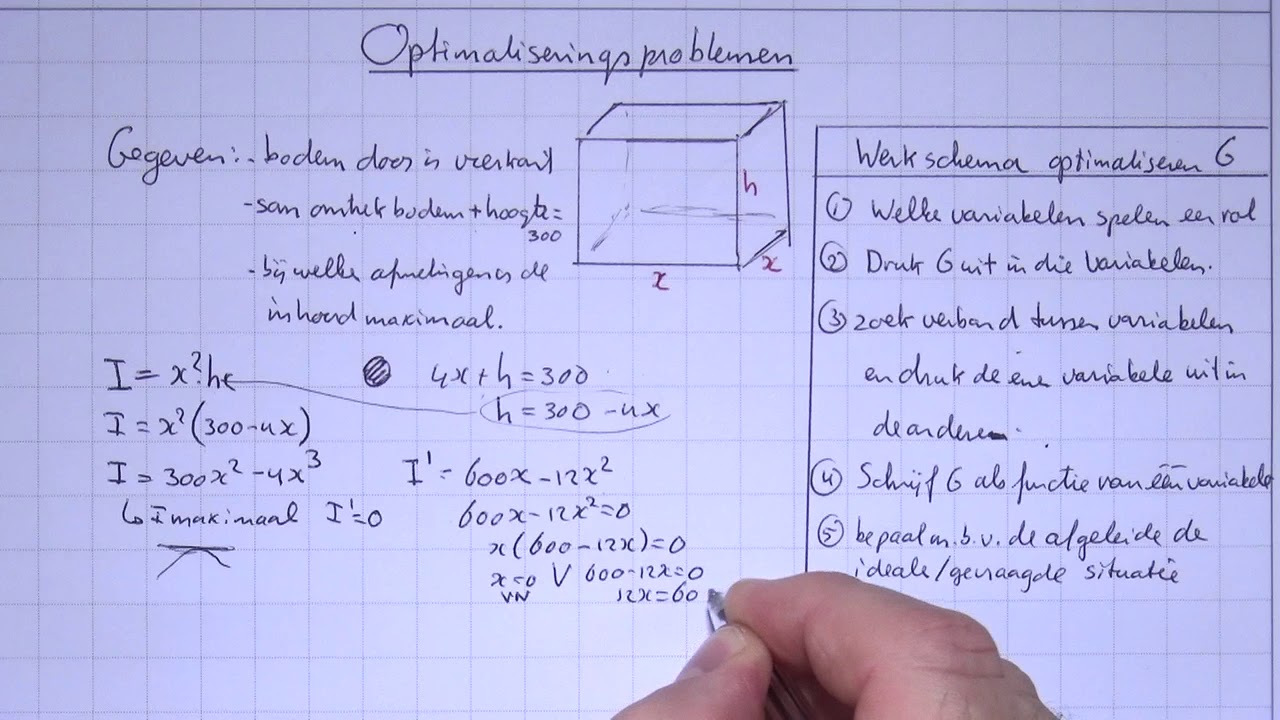 Optimaliseringsproblemen
Gegeven: - bodem doos is vierkant
- som omtrek bodem + hoogte =
300
- bij welke afmetingen is de
inhoud maximaal.
h
x
x
I = x².h
I = x²(300-4x)
I = 300x² - 4x³
↳ I maximaal I' = 0
4x + h = 300
h = 300 - 4x
I' = 600x - 12x²
600x - 12x² = 0
x(600 - 12x) = 0
x = 0 V 600 - 12x = 0
VN 12x = 60
Werkschema optimaliseren G
① Welke variabelen spelen een rol
② Druk G uit in die variabelen.
③ zoek verband tussen variabelen
en druk de ene variabele uit in
de andere.
④ Schrijf G als functie van één variabele
⑤ bepaal m.b.v. de afgeleide de
ideale/gevraagde situatie